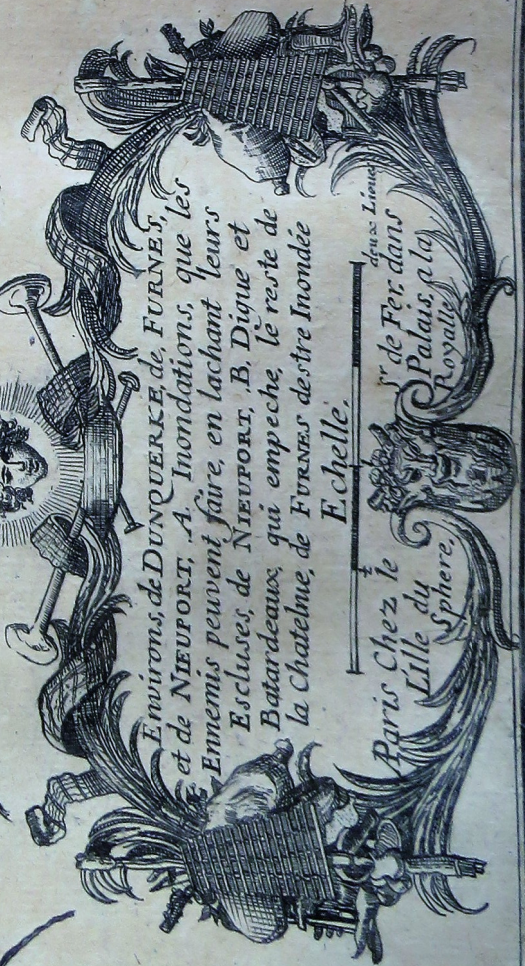 Environs, de DUNQUERKE, de FURNES,
et de NIEUPORT, A. Inondations, que les
Ennemis peuvent faire, en lachant leurs
Escluses, de NIEUPORT, B, Digue et
Batardeaux, qui empeche, le reste de
la Chatelnie, de FURNES destre Inondée
Echelle.
deux Lieues
A Paris Chez le Sr de Fer, dans
Lille du Palais, a la
Sphere, Royalle